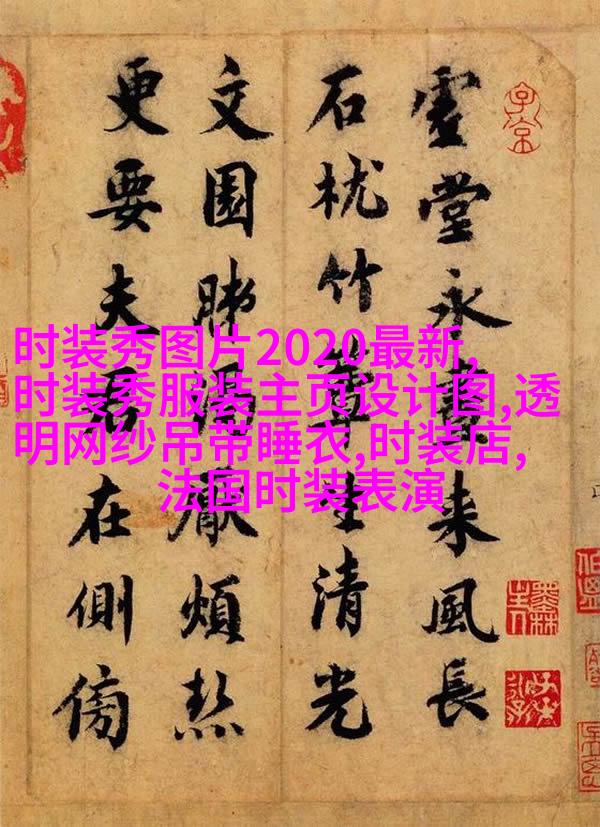 虛堂永晝来風長
石枕竹簟生清光
文園肺渴厭煩熱
更要夫君在側傍
时装秀图片2020最新,
时装秀服装主页设计图,透
明网纱吊带睡衣,时装店,
法国时装表演